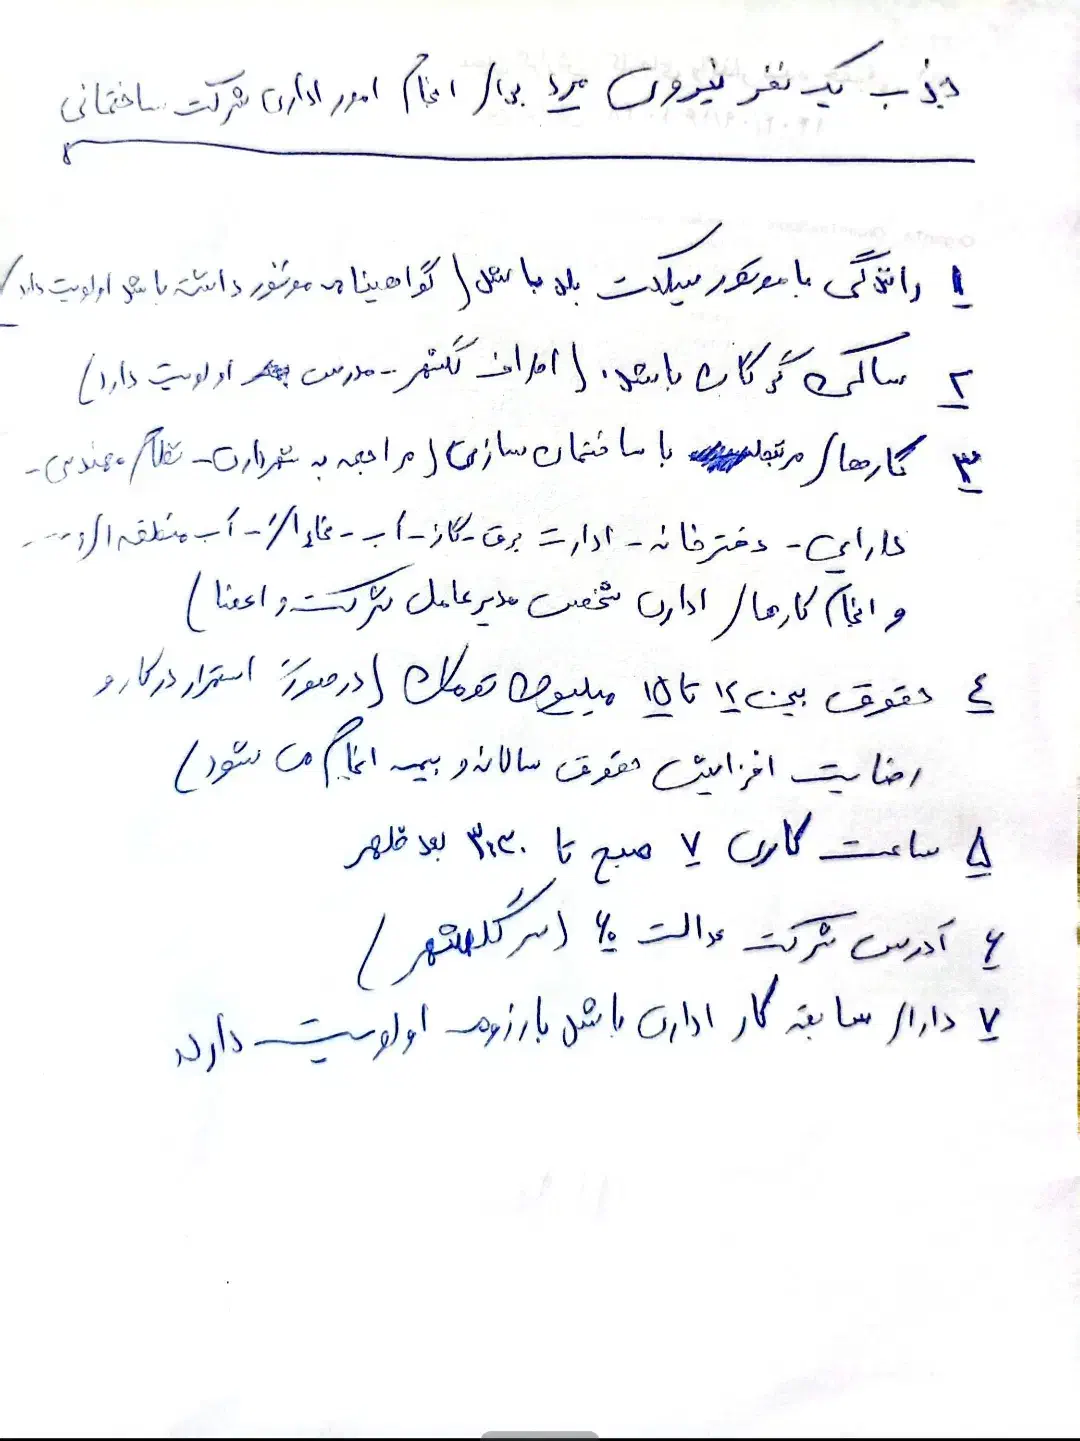 جذب یک نفر نیروی مرد برای انجام امور اداری شرکت ساختمانی
۱ رانندگی با موتور سیکلت بلد باشد (گواهینامه موتور داشته باشد اولویت دارد)
۲ ساکن گرگان باشد. (اطراف گلشهر - مدرس اولویت دارد)
۳ کارهای مرتبط با ساختمان سازی (مراجعه به شهرداری - نظام مهندسی -
دارایی - دفترخانه - ادارت برق - گاز - آب - مخابرات - آب منطقه ای و ....
و انجام کارهای اداری شخص مدیر عامل شرکت و اعضا)
٤ حقوق بین ۱۲ تا ۱۵ میلیون تومان (در صورت استمرار در کار و
رضایت افزایش حقوق سالانه و بیمه انجام می شود)
۵ ساعت کاری ۷ صبح تا ۳:۳۰ بعد ظهر
۶ آدرس شرکت عدالت ۶۰ (سر گلشهر)
۷ دارای سابقه کار اداری باشد با رزومه اولویت دارند